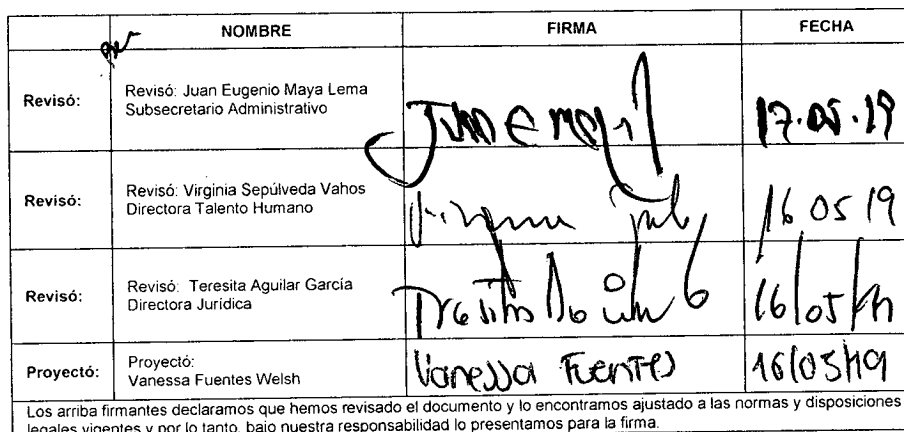 NOMBRE FIRMA FECHA
Revisó: Revisó: Juan Eugenio Maya Lema
Subsecretario Administrativo
Juan E Maya L 17.05.19
Revisó: Revisó: Virginia Sepúlveda Vahos
Directora Talento Humano
16 05 19
Revisó: Revisó: Teresita Aguilar García
Directora Jurídica
16/05/19
Proyectó: Proyectó:
Vanessa Fuentes Welsh
Vanessa Fuentes 16/05/19
Los arriba firmantes declaramos que hemos revisado el documento y lo encontramos ajustado a las normas y disposiciones
legales vigentes y por lo tanto, bajo nuestra responsabilidad lo presentamos para la firma.